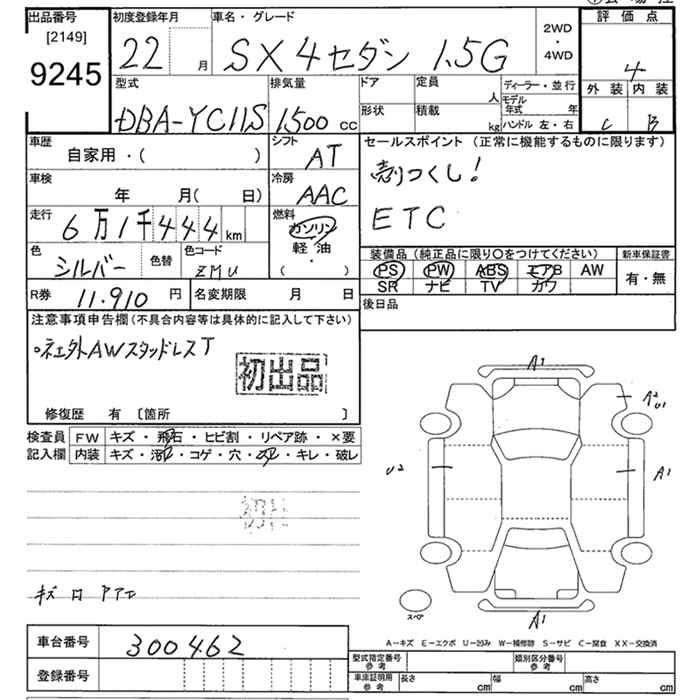 出品番号
[2149]
9245
初度登録年月
22 月
車名・グレード
SX4セダン 1.5G
2WD
・
4WD
評価点
4
外装 内装
C B
型式
DBA-YC11S
排気量
1500 cc
ドア
定員
人
形状
積載
kg
ディーラー・並行
モデル年式 年
ハンドル 左・右
車歴
自家用・( )
シフト
AT
セールスポイント (正常に機能するものに限ります)
売りつくし!
ETC
車検
年 月( 日)
冷房
AAC
走行
6万1千444km
燃料
ガソリン
軽油
( ・ )
色
シルバー
色替
色コード
ZMU
装備品(純正品に限り○をつけてください)
新車保証書
PS PW ABS エアB AW
有・無
SR ナビ TV カワ
R券
11,910 円
名変期限 月 日
後日品
注意事項申告欄(不具合内容等は具体的に記入して下さい)
社外AWスタッドレスT
初出品
修復歴 有 [箇所 ]
検査員
記入欄
FW キズ・飛石・ヒビ割・リペア跡・×要
内装 キズ・汚レ・コゲ・穴・スレ・キレ・破レ
A1
A2
U1
U2
A1
キズ
A1
スペア
A-キズ E-エクボ U-凹み W-補修跡 S-サビ C-腐食 XX-交換済
車台番号
300462
登録番号
型式指定番号
参考
類別区分番号
参考
車庫証明用
参考
長さ cm
幅 cm
高さ cm